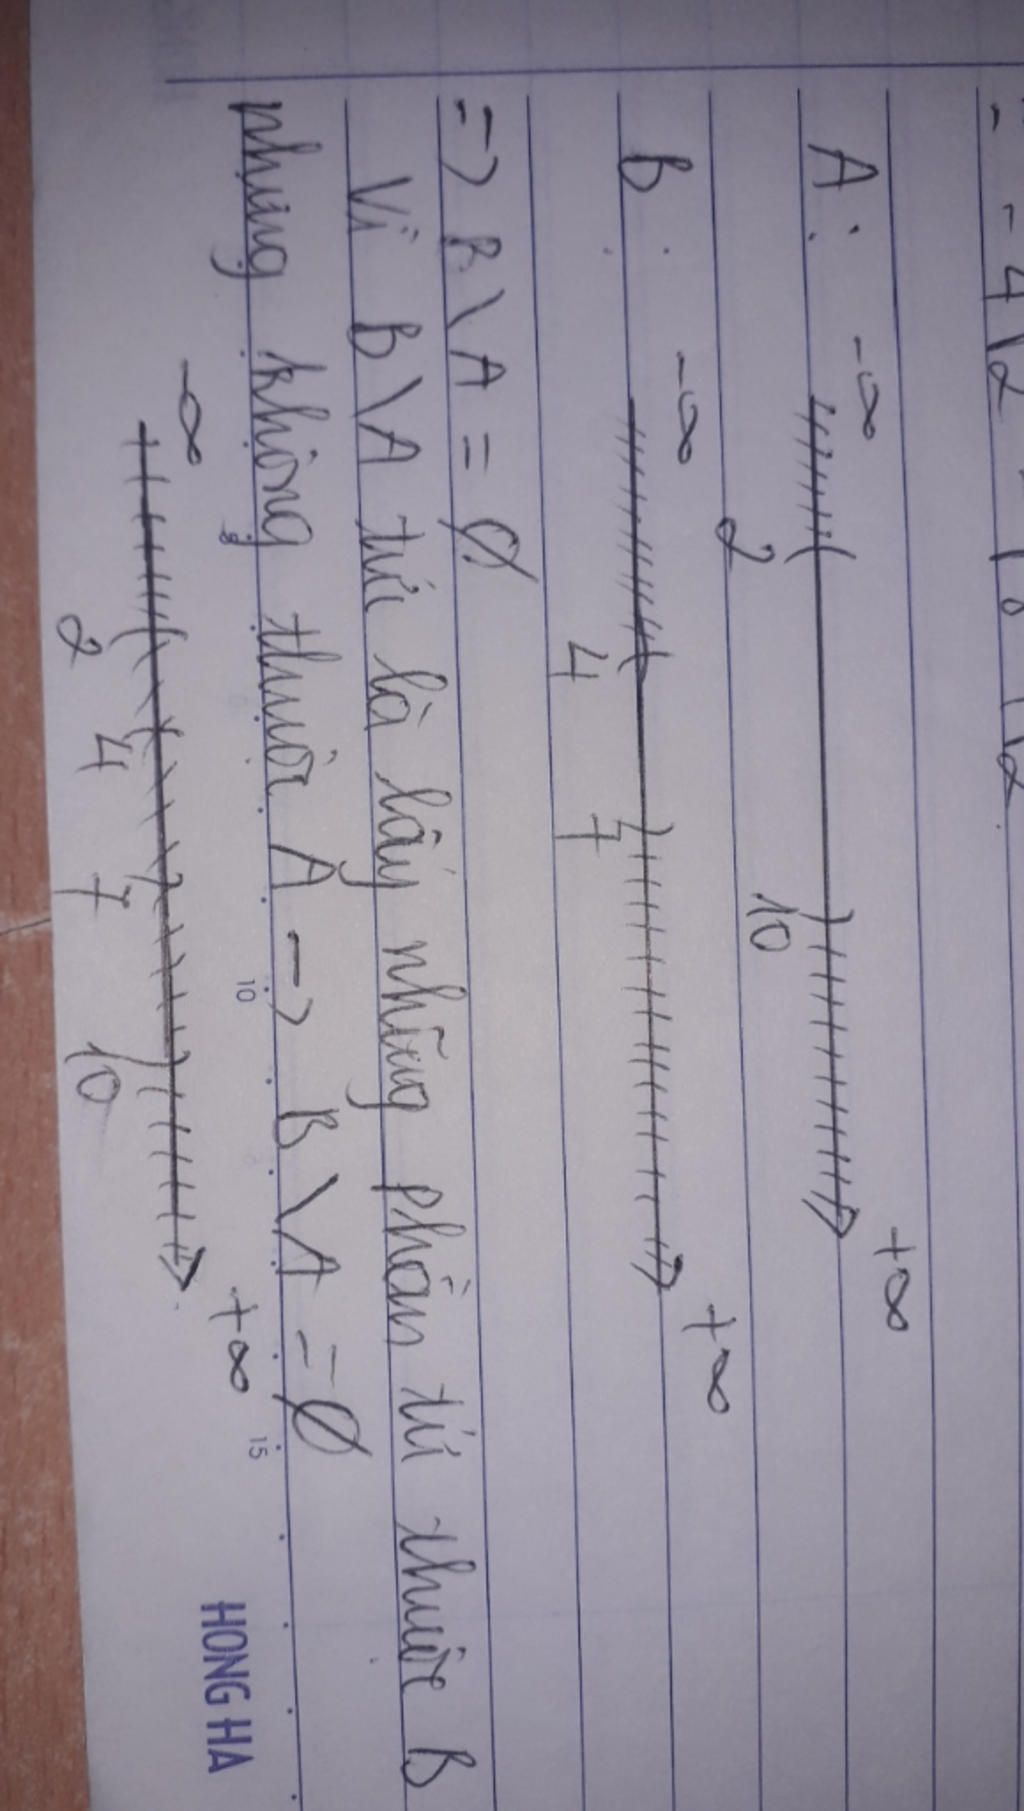 A: -∞ 2 10 +∞
B: -∞ 4 7 +∞
=> B \ A = Ø
Vì B \ A tức là lấy những phần tử thuộc B
nhưng không thuộc A -> B \ A = Ø
-∞ 2 4 7 10 +∞
10 15
HONG HA